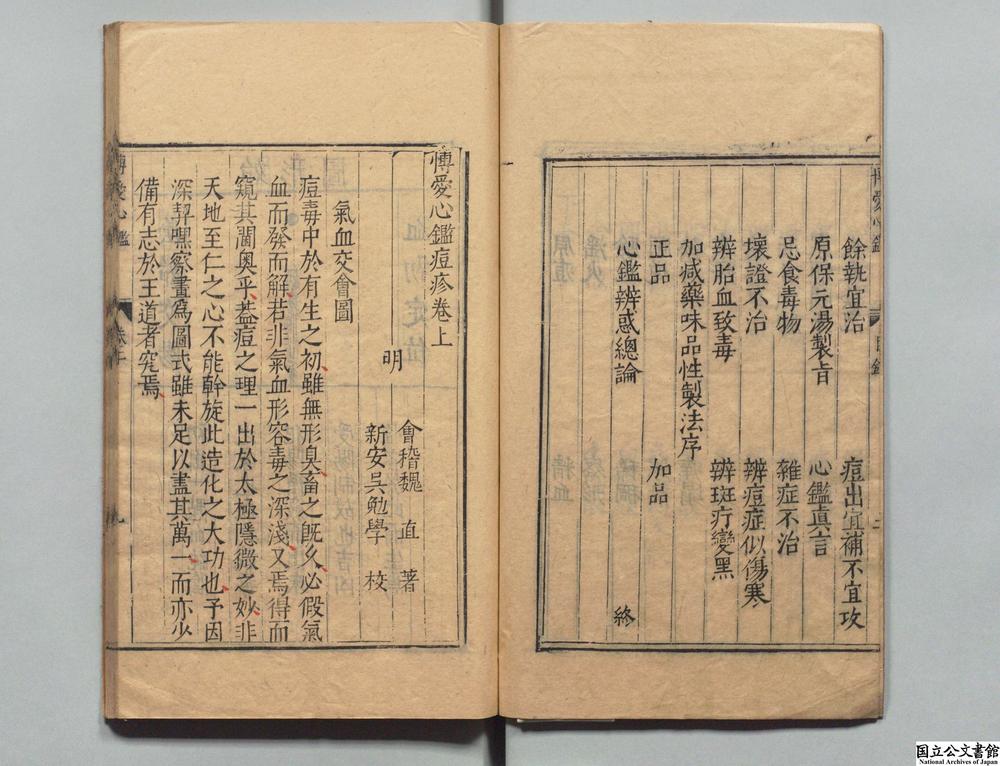 餘執宜治　痘出宜補不宜攻
原保元湯製旨　心鑑真言
忌食毒物　雜症不治
壞證不治　辨痘症似傷寒
辨胎血致毒　辨斑疔變黑
加减藥味品性製法序
正品　加品
心鑑辨惑總論　終
愽愛心鑑痘疹卷上
明　會稽魏直著
新安吳勉學校
氣血交會圖
痘毒中於有生之初雖無形臭畜之旣久必假氣
血而發而解若非氣血形容毒之深淺又焉得而
窺其閫奥乎葢痘之理一出於太極隱微之妙非
天地至仁之心不能幹旋此造化之大功也予因
深契嘿察畫爲圖式雖未足以盡其萬一而亦少
備有志於王道者究焉
国立公文書館
National Archives of Japan